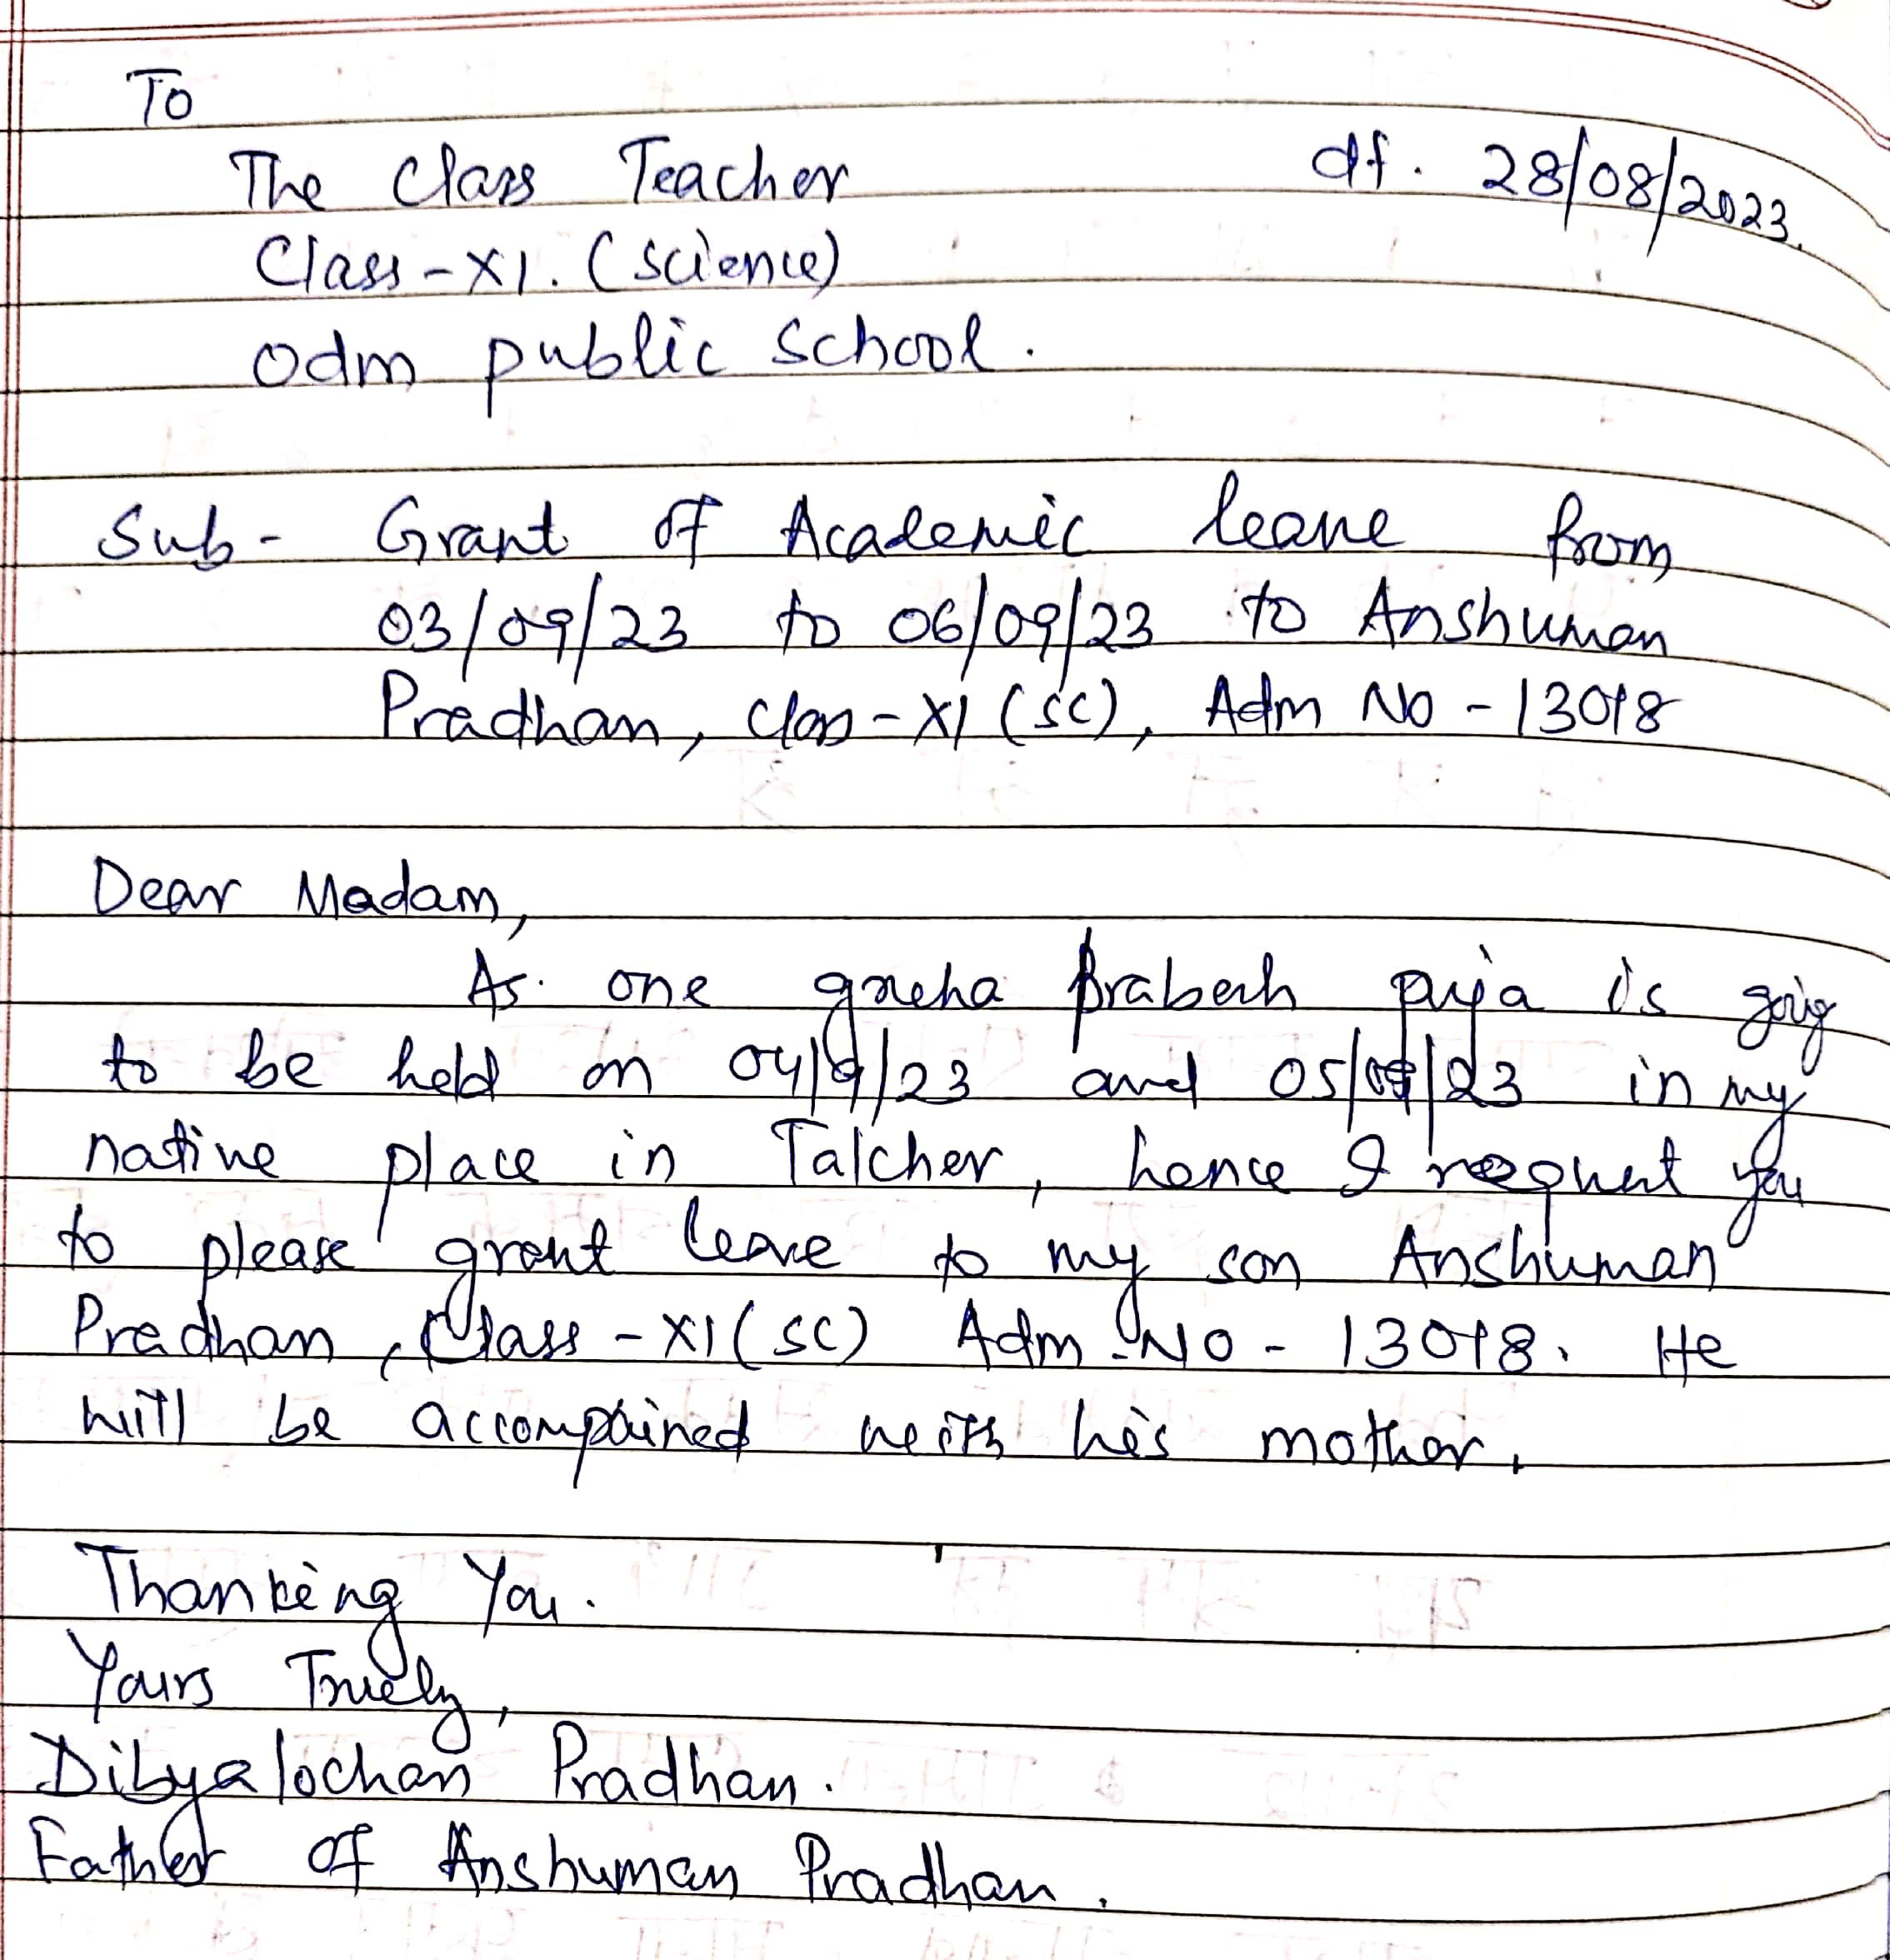 To
The Class Teacher
dt. 28/08/2023.
Class-XI. (science)
Odm public school.
Sub- Grant of Academic leave from
03/09/23 to 06/09/23 to Anshuman
Pradhan, Class-XI (SC), Adm No - 13018
Dear Madam,
As one gruha prabesh puja is going
to be held on 04/9/23 and 05/09/23 in my
native place in Talcher, hence I request you
to please grant leave to my son Anshuman
Pradhan, Class-XI(SC) Adm No- 13018. He
will be accompained with his mother.
Thanking You.
Yours Truely,
Dibyalochan Pradhan.
Father of Anshuman Pradhan.